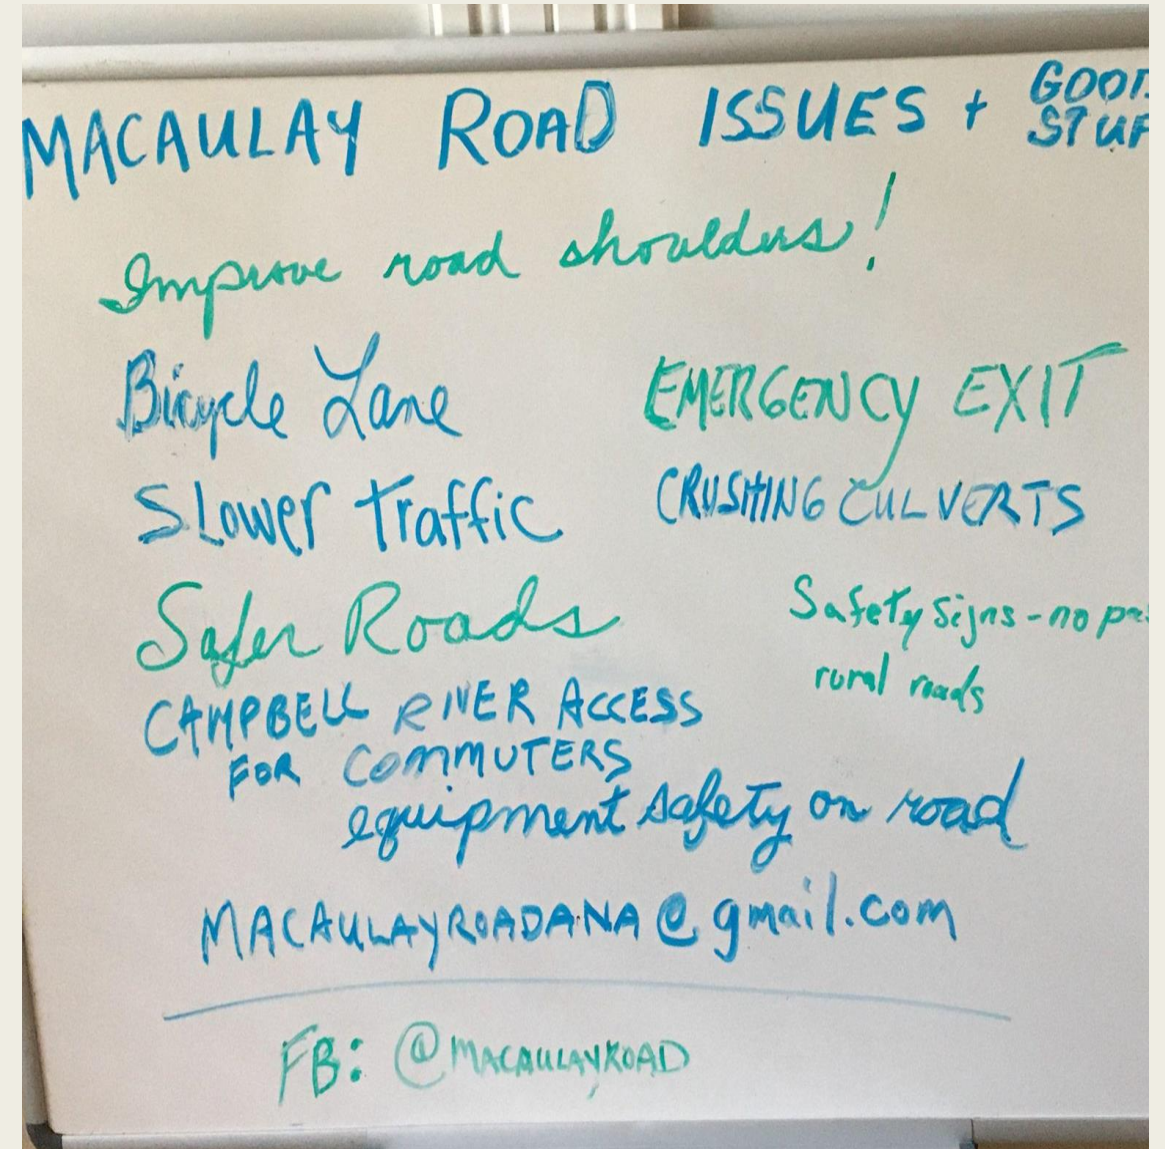 MACAULAY ROAD ISSUES + GOOD
STUF
Improve road shoulders!
Bicycle Lane
EMERGENCY EXIT
Slower Traffic
CRUSHING CULVERTS
Safer Roads
Safety Signs - no
rural roads
CAMPBELL RIVER ACCESS
FOR COMMUTERS
equipment safety on road
MACAULAYROADANA@gmail.com
FB: @MACAULAYROAD